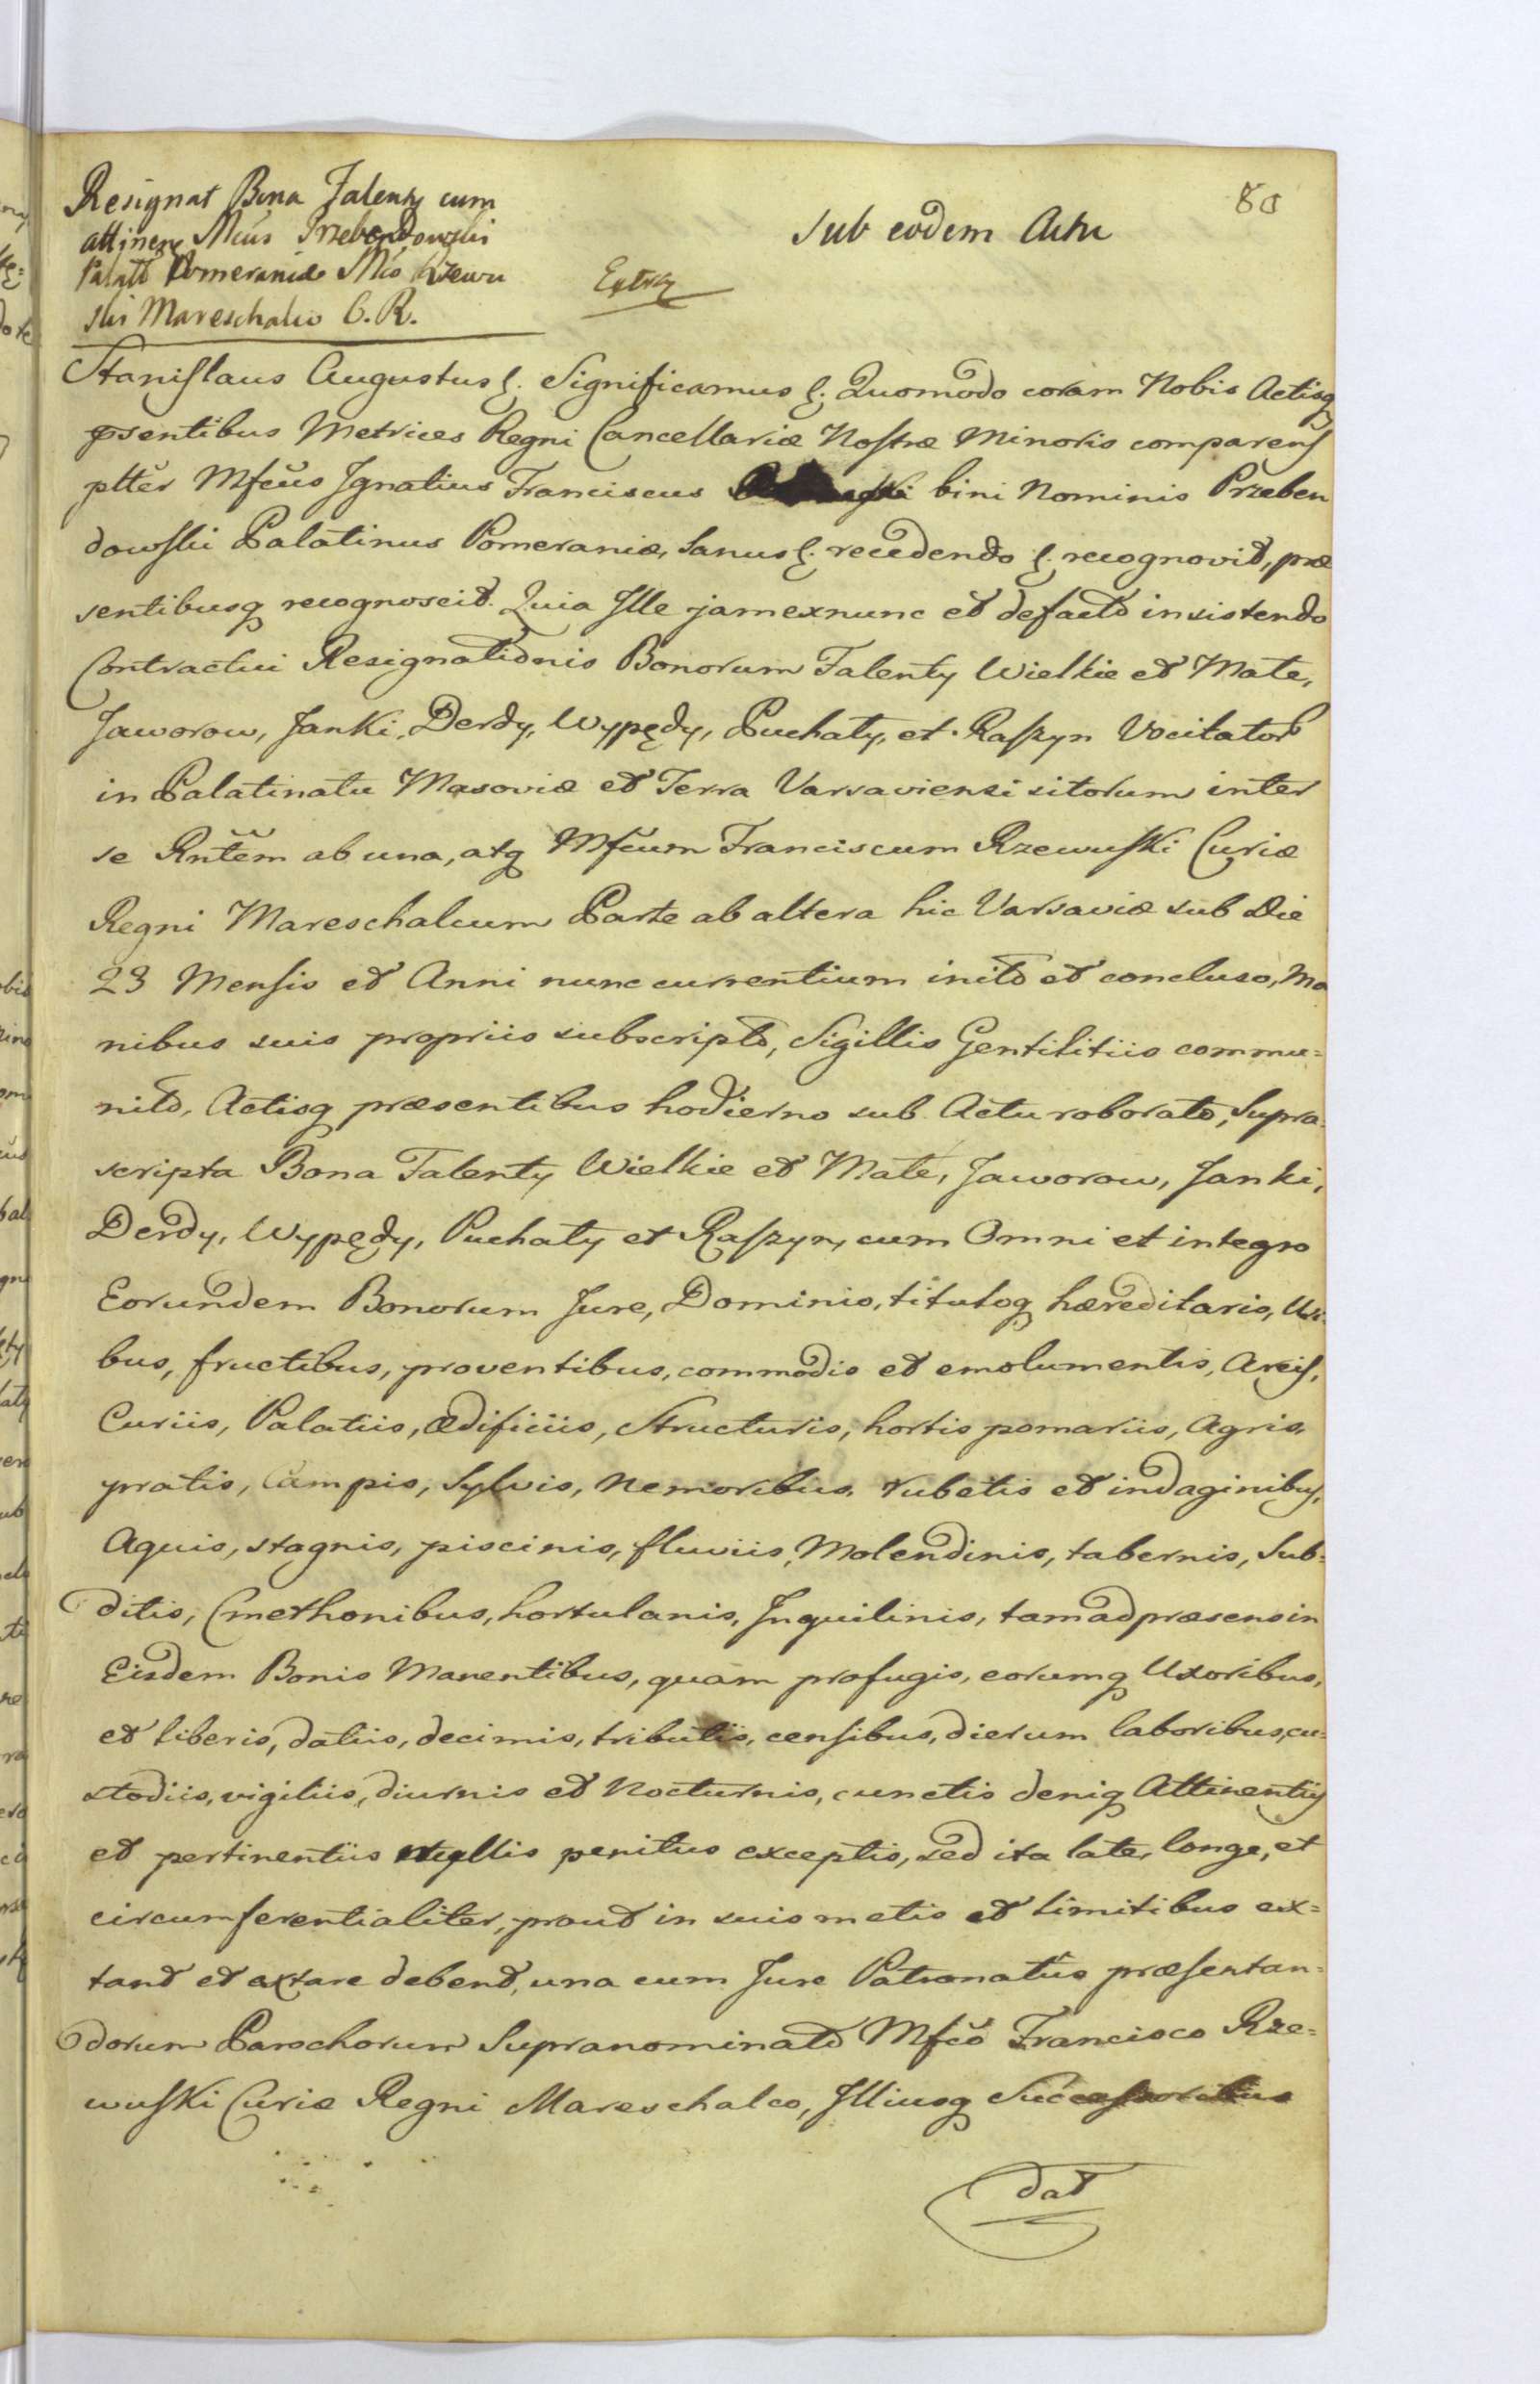 80
Resignat Bona Falenty cum
attinen Mcus Przebendowski
Palatt Pomeraniæ Mco Rzewu
ski Mareschalco C. R.
Sub eodem Actu
Extra
Stanislaus Augustus &. Significamus &. Quomodo coram Nobis Actisq
psentibus Metrices Regni Cancellariæ Nostræ Minoris comparens
plter Mfcus Ignatius Franciscus bini Nominis Przeben
dowski Palatinus Pomeraniæ, Sanus &. recedendo &. recognovit, præ
sentibusq recognoscit. Quia Ille jamexnunc et defacto insistendo
Contractui Resignationis Bonorum Falenty Wielkie et Małe,
Jaworow, Janki, Derdy, Wypędy, Puchały, et Raszyn Vocitator
in Palatinatu Masoviæ et Terra Varsaviensi sitorum inter
se Rntem ab una, atq Mfcum Franciscum Rzewuski Curiæ
Regni Mareschalcum Parte ab altera hic Varsaviæ sub Die
23 Mensis et Anni nunc currentium inito et concluso, Ma
nibus suis propriis subscripto, Sigillis Gentilitiis commu=
nito, Actisq præsentibus hodierno sub Actu roborato, Supra
scripta Bona Falenty Wielkie et Małe, Jaworow, Janki,
Derdy, Wypędy, Puchały et Raszyn, cum Omni et integro
Eorundem Bonorum Jure, Dominio, tituloq hæreditario, Usi
bus, fructibus, proventibus, commodis et emolumentis, Areis,
Curiis, Palatiis, ædificiis, Structuris, hortis pomariis, Agris,
pratis, Campis, Sylvis, Nemoribus, rubetis et indaginibus,
Aquis, stagnis, piscinis, fluviis, Molendinis, tabernis, Sub=
ditis, Cmethonibus, hortulanis, Inquilinis, tam ad præsens in
Eisdem Bonis Manentibus, quam profugis, eorumq Uxoribus,
et liberis, datiis, decimis, tributis, censibus, dierum laboribus, cu=
stodiis, vigiliis, diurnis et Nocturnis, cunctis deniq Attinentiis
et pertinentiis nullis penitus exceptis, sed ita late, longe, et
circumferentialiter, prout in suis metis et limitibus ex=
tant et extare debent, una cum Jure Patronatus præsentan=
dorum Parochorum Supranominato Mfco Francisco Rze=
wuski Curiæ Regni Mareschalco, Illiusq Successoribus
dat